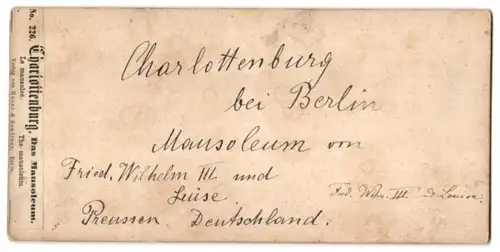 No. 226. Charlottenburg. Das Mausoleum.
Le mausolée. The mausoleum.
Charlottenburg
bei Berlin
Mausoleum von
Fried. Wilhelm III und
Luise.
Fred. Wilm. III & Louise.
Preussen. Deutschland.